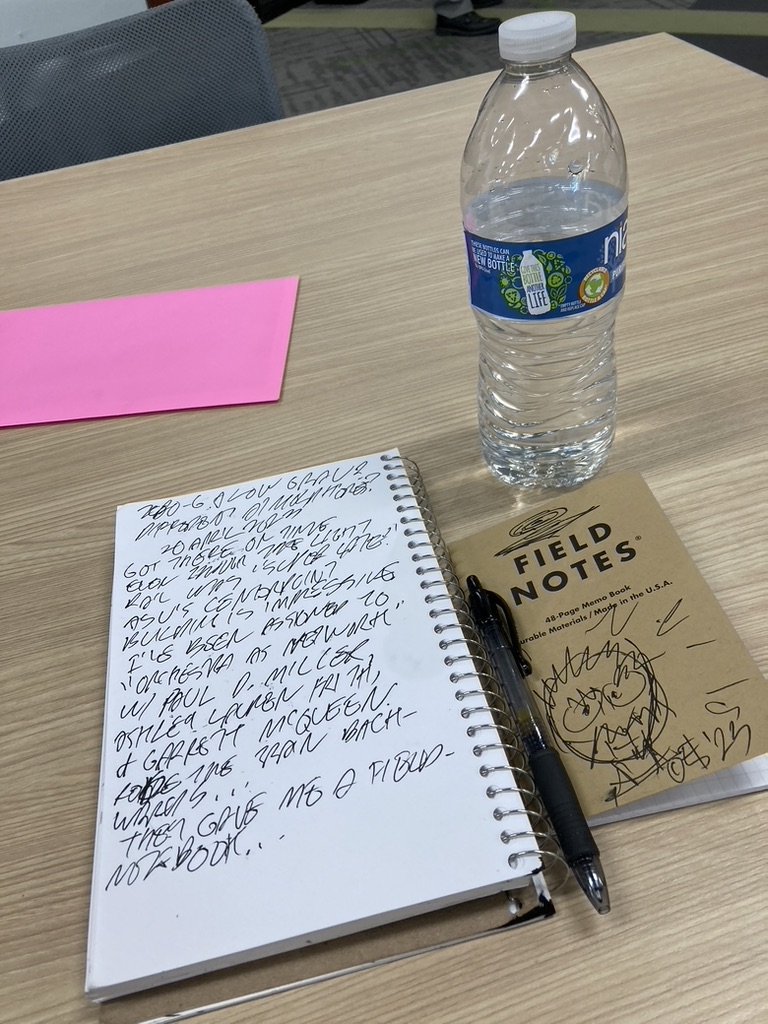 THESE BOTTLES CAN
BE USED TO MAKE A
NEW BOTTLE
GIVE THIS
BOTTLE
ANOTHER
LIFE
EMPTY BOTTLE
AND REPLACE CAP
20 APRIL
GOT THERE ON TIME
EVEN THOUGH THE LIGHT
RAIL WAS "SUPER LATE."
ASU'S CENTERPOINT
BUILDING IS IMPRESSIVE
I'VE BEEN ASSIGNED TO
"ORCHESTRA AS NETWORK"
W/ PAUL D. MILLER,
ASHLEY LAUREN FRITH,
& GARRETT MCQUEEN.
RODE THE TRAIN BACK-
WARDS...
THEY GAVE ME A FIELD-
NOTEBOOK...
FIELD
NOTES®
48-Page Memo Book
urable Materials / Made in the U.S.A.
'23